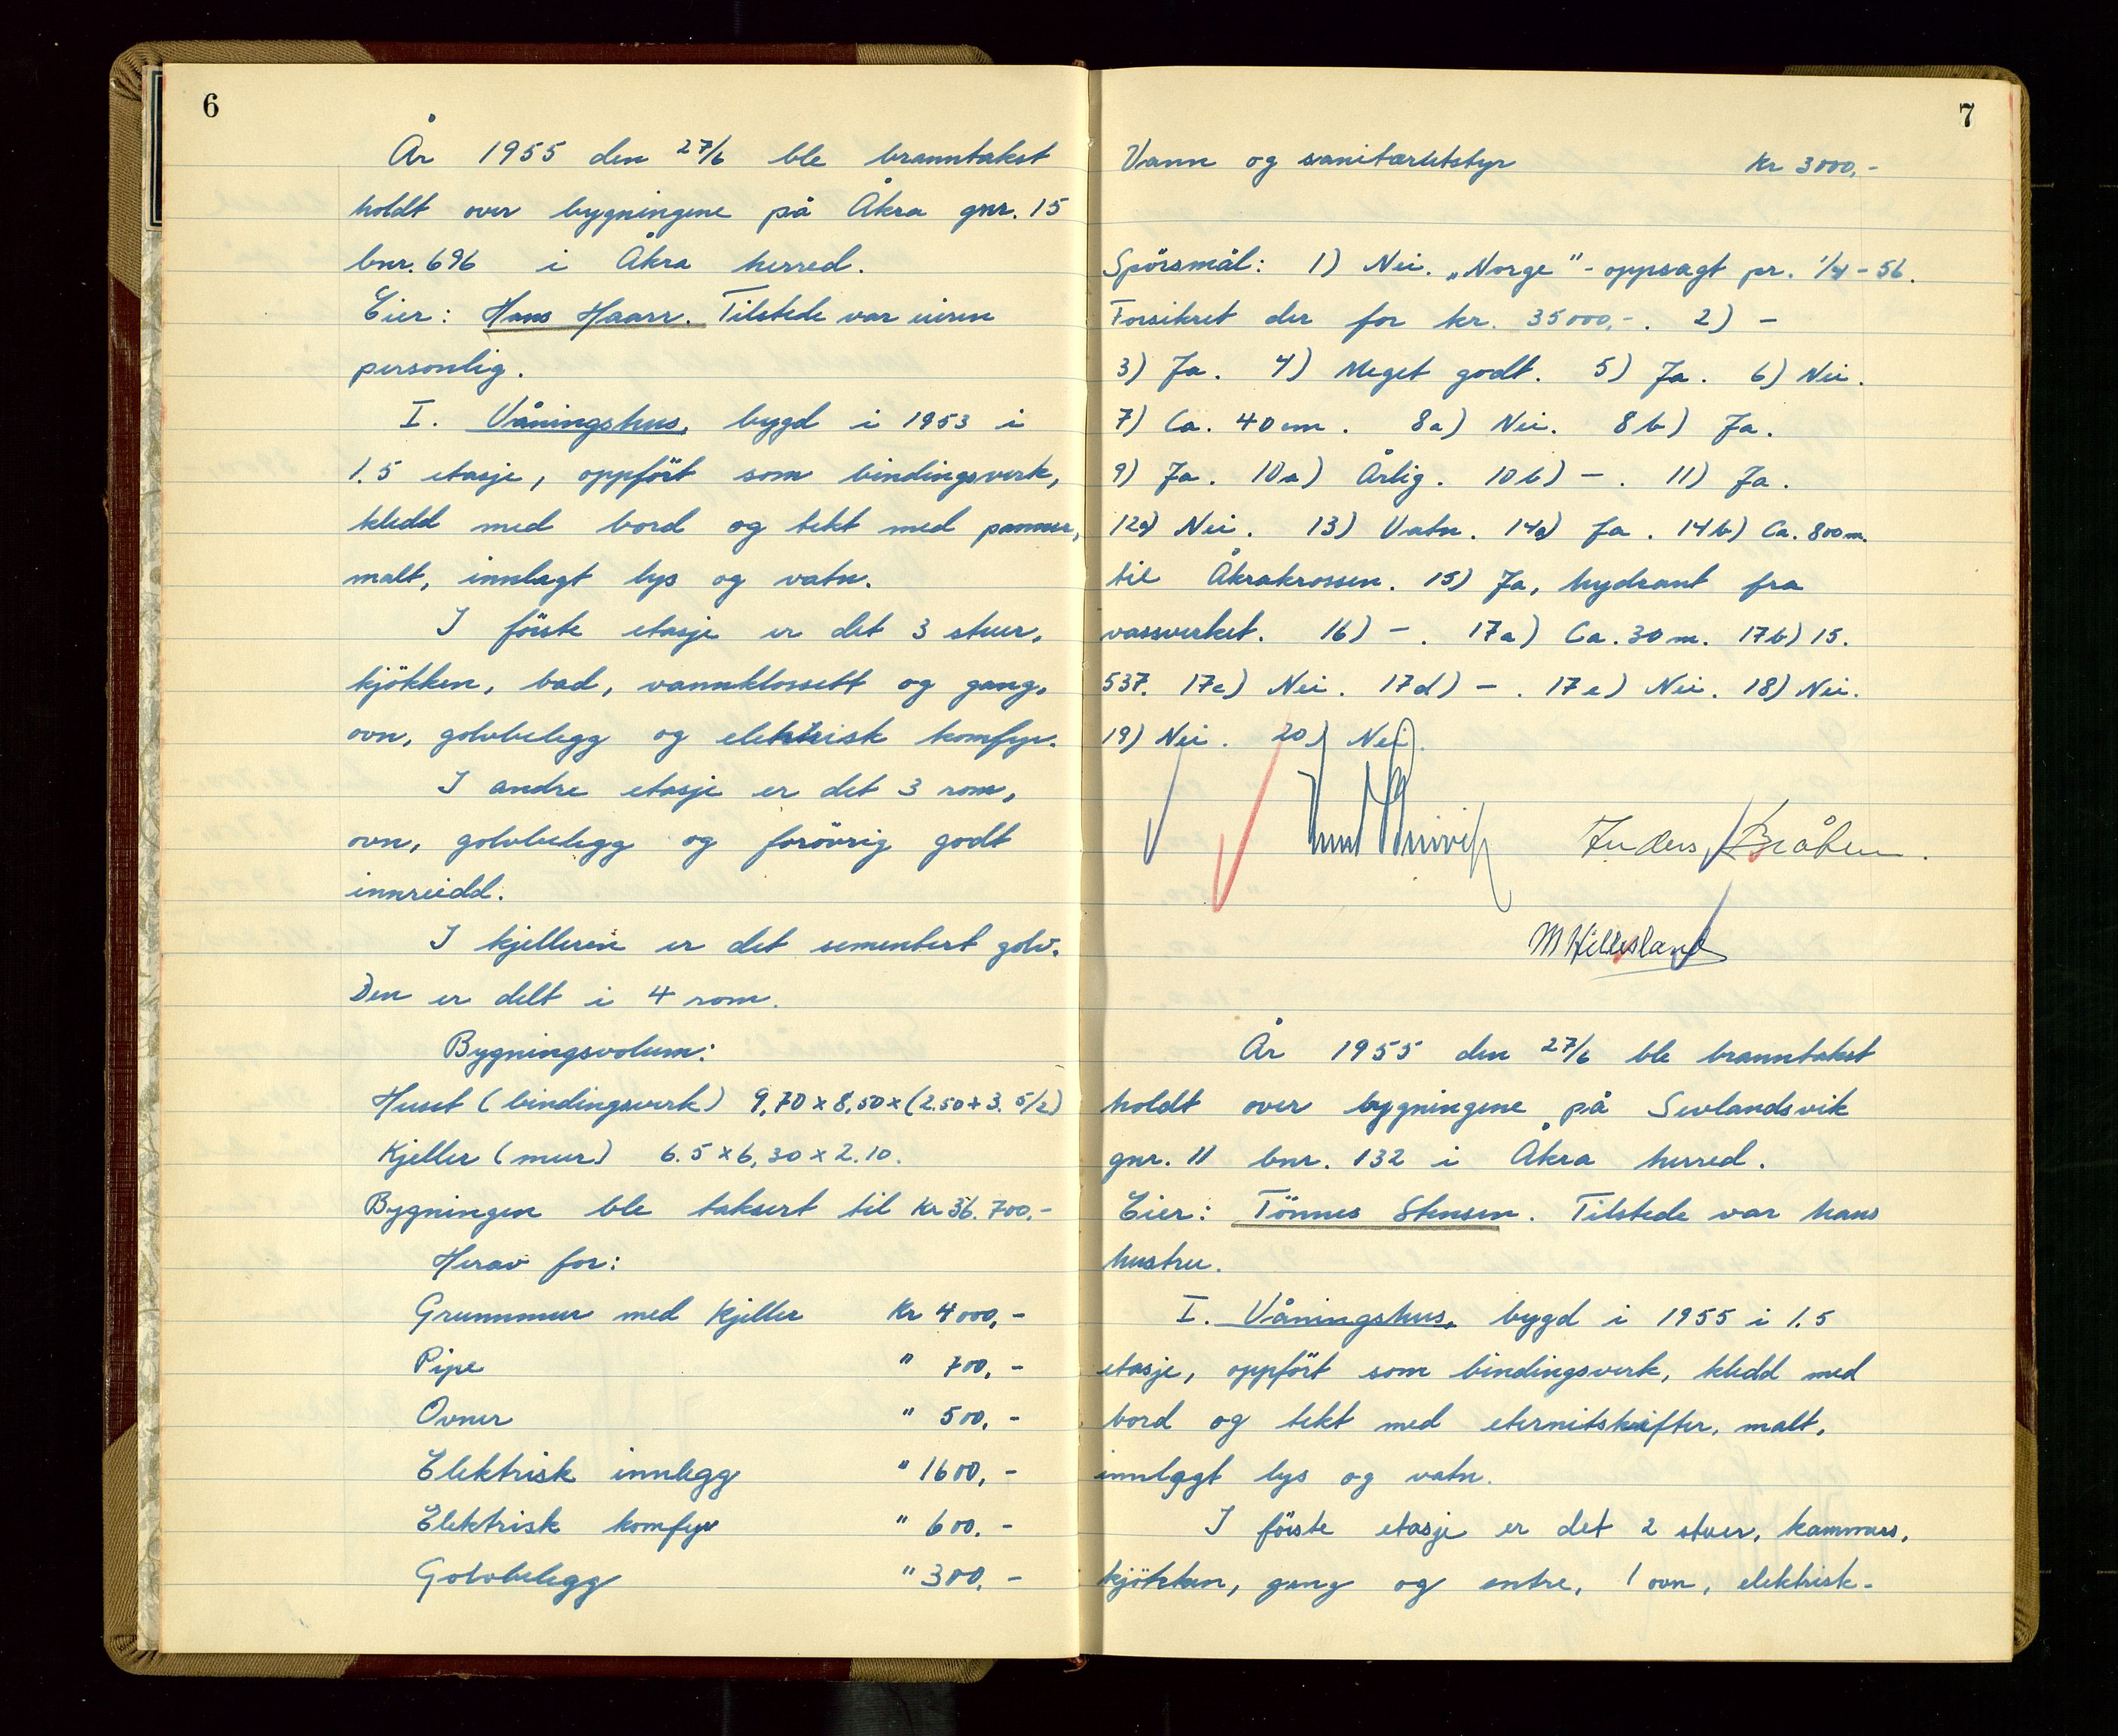 6
År 1955 den 27/6 ble branntakst
holdt over bygningene på Åkra gnr. 15
bnr. 696 i Åkra herred.
Eier: Hans Haarr. Tilstede var eieren
personlig.
I. Våningshus, bygd i 1953 i
1.5 etasje, oppfört som bindingsverk,
kledd med bord og tekt med panner,
malt, innlagt lys og vatn.
I föiste etasje er det 3 stuer,
kjökken, bad, vannklossett og gang,
ovn, golvbelegg og elektrisk komfyr.
I andre etasje er det 3 rom,
ovn, golvbelegg og forövrig godt
innreidd.
I kjelleren er det sementert golv.
Den er delt i 4 rom.
Bygningsvolum:
Huset (bindingsverk) 9,70 x 8,50 x (2.50 + 3. 5/2)
Kjeller (mur) 6.5 x 6,30 x 2.10.
Bygningen ble taksert til Kr 36.700,-
Herav for:
Grunnmur med kjeller Kr 4000,-
Pipe " 700,-
Ovner " 500,-
Elektrisk innlegg " 1600,-
Elektrisk komfyr " 600,-
Golvbelegg " 300,-
7
Vann og sanitærutstyr Kr 3000,-
Spörsmål: 1) Nei. „Norge"- oppsagt pr. 1/4 - 56.
Forsikret der for kr. 35000,-. 2) -
3) Ja. 4) Meget godt. 5) Ja. 6) Nei.
7) Ca. 40 cm. 8a) Nei. 8b) Ja.
9) Ja. 10a) Årlig. 10b) -. 11) Ja.
12a) Nei. 13) Vatn. 14a) Ja. 14b) Ca. 800 m.
til Åkrakrossen. 15) Ja, hydrant fra
vassverket. 16) -. 17a) Ca. 30 m. 17b) 15.
537. 17c) Nei. 17d) -. 17e) Nei. 18) Nei.
19) Nei. 20) Nei.
Anders Bråten.
M Hillesland
År 1955 den 27/6 ble branntakst
holdt over bygningene på Sevlandsvik
gnr. 11 bnr. 132 i Åkra herred.
Eier: Tönnes Stensen. Tilstede var hans
hustru.
I. Våningshus, bygd i 1955 i 1.5
etasje, oppfört som bindingsverk, kledd med
bord og tekt med eternitskifter, malt,
innlagt lys og vatn.
I föiste etasje er det 2 stuer, kammers,
kjökken, gang og entre, 1 ovn, elektrisk-